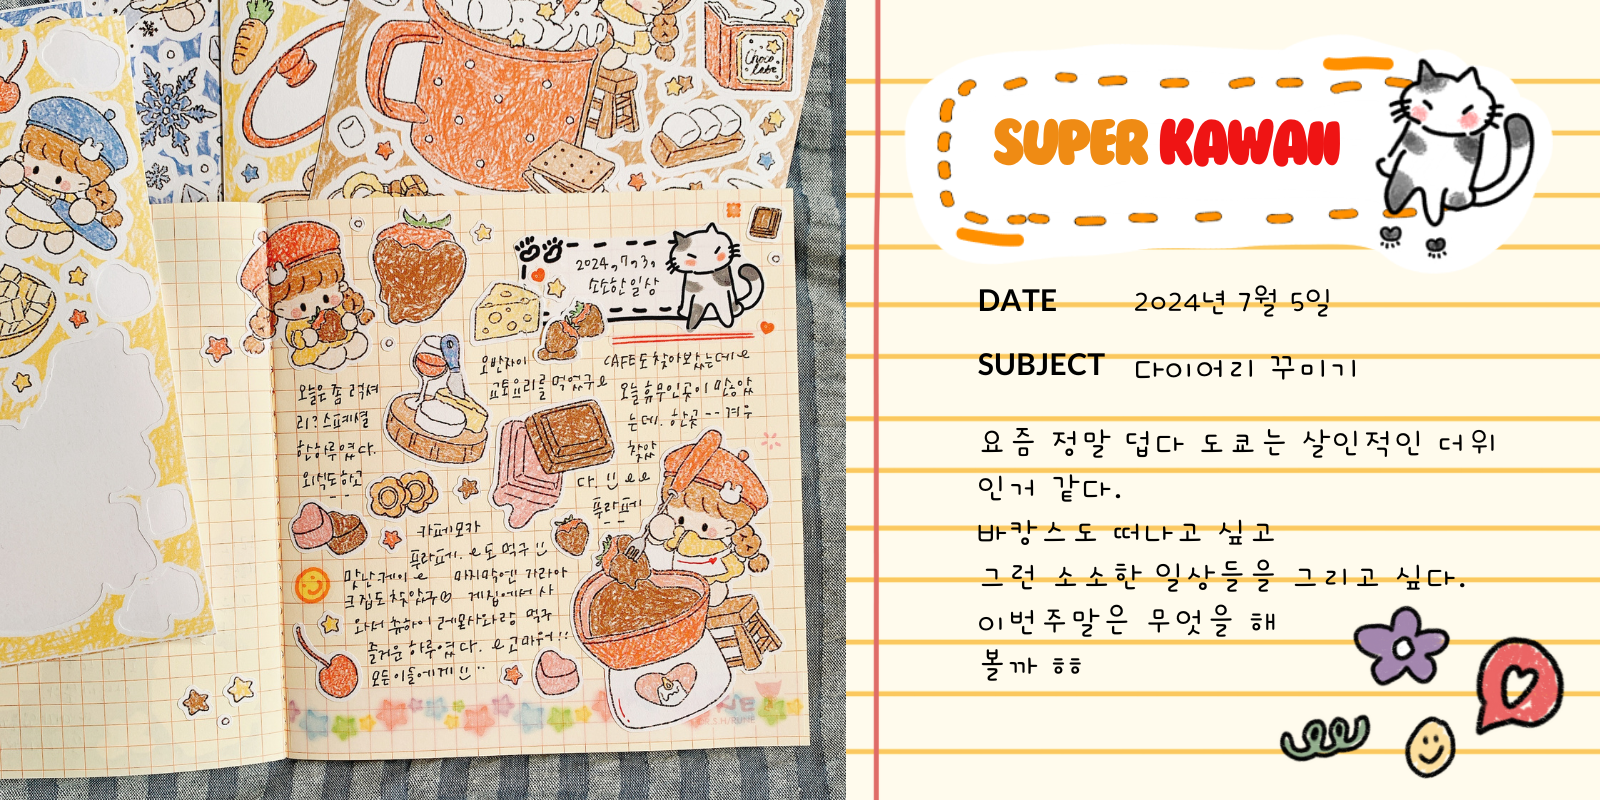 Choco
late
2024, 7, 3,
소소한 일상
오늘은 좀 럭셔
리? 스페셜
한 하루였다.
외식도 하고
오반자이
교토요리를 먹었구
CAFE도 찾아봤는데
오늘 휴무인곳이 많았
는데. 한곳 -- 겨우
찾았
다. !!
푸라페
카페모카
푸라페. 도 먹구 !!
맛난 케이
크집도 찾았구
마지막엔 가라아
게집에서 사
와서 츄하이 레몬사와랑 먹구
즐거운 하루였다. 고마워!!
모든이들에게 !!
SUPER KAWAII
DATE 2024년 7월 5일
SUBJECT 다이어리 꾸미기
요즘 정말 덥다 도쿄는 살인적인 더위
인거 같다.
바캉스도 떠나고 싶고
그런 소소한 일상들을 그리고 싶다.
이번주말은 무엇을 해
볼까 ㅎㅎ